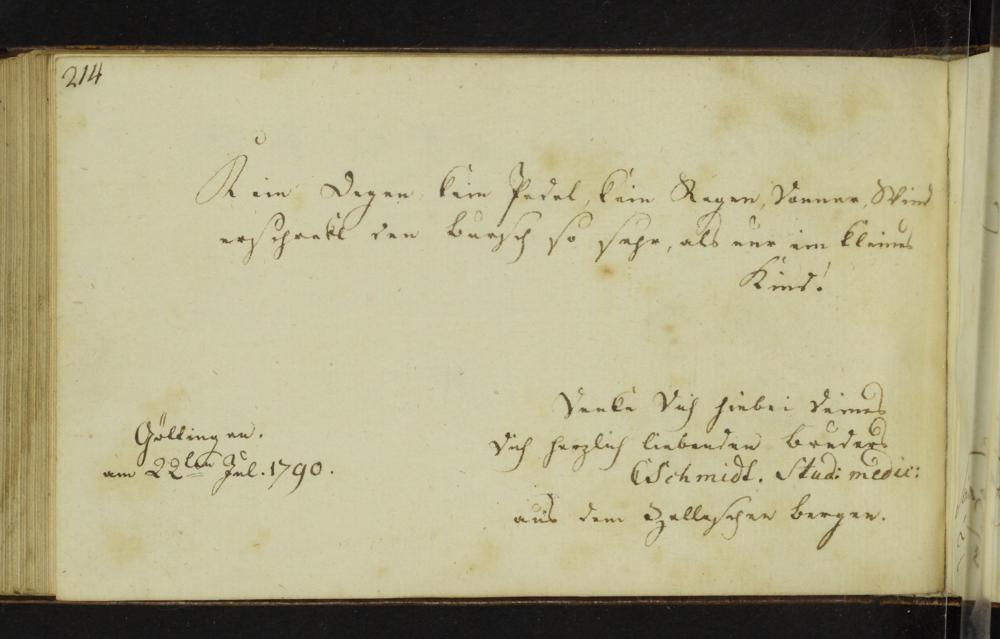 214
Kein Degen kein Pedel, kein Regen, Donner, Wind
erschrekt den Bursch so sehr, als nur ein kleines
Kind!
Denke Dich hiebei Deines
Dich herzlich liebenden Bruders
CSchmidt. Stud: medic:
aus dem Zellischen Bergen.
Göttingen.
am 22ten Jul. 1790.